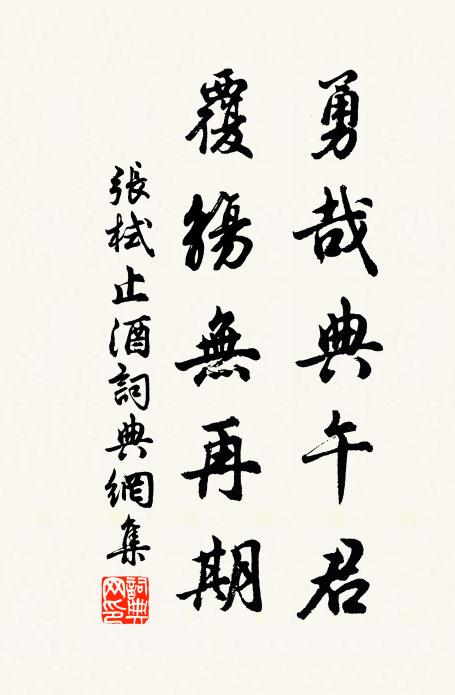 勇哉典午君
覆觴無再期
張栻止酒詞典網集
詞典
网印